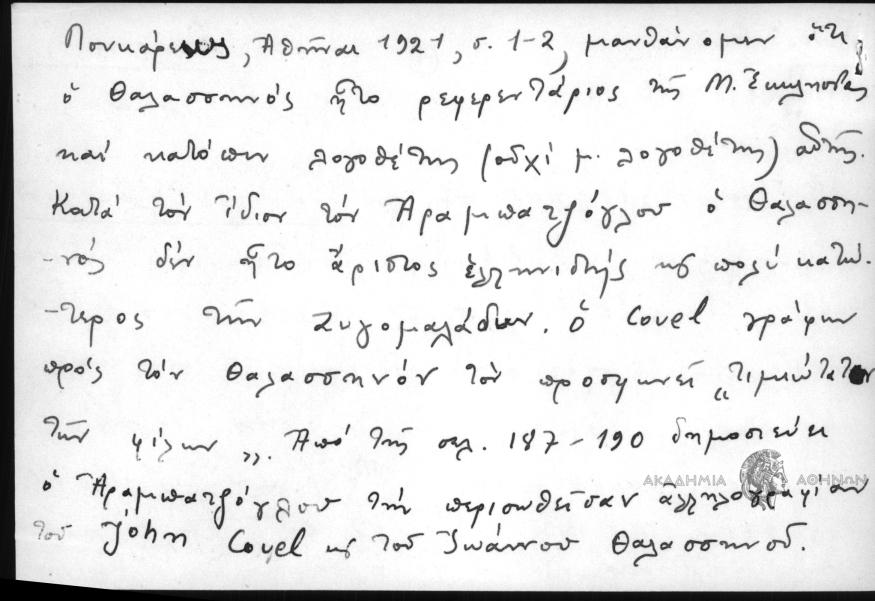 Πουκάρεως, Ἀθῆναι 1921, σ. 1-2, μανθάνομεν ὅτι
ὁ Θαλασσηνός ἦτο ρεφερεντάριος τῆς Μ. Ἐκκλησίας
καί κατόπιν λογοθέτης (οὐχί μ. λογοθέτης) αὐτῆς.
Κατά τόν ἴδιον τόν Ἀραμπατζόγλου ὁ Θαλασση-
-νός δέν ἦτο ἄριστος ἑλληνιστής κ πολύ κατώ-
-τερος τῶν Ζυγομαλάδων. ὁ Covel γράφων
πρός τόν Θαλασσηνόν τόν προσφωνεῖ „τιμιώτατον
τῶν φίλων„. Ἀπό τῆς σελ. 187-190 δημοσιεύει
ὁ Ἀραμπατζόγλου τήν περισωθεῖσαν ἀλληλογραφίαν
τοῦ John Covel κ τοῦ Ἰωάννου Θαλασσηνοῦ.
ΑΚΑΔΗΜΙΑ ΑΘΗΝΩΝ